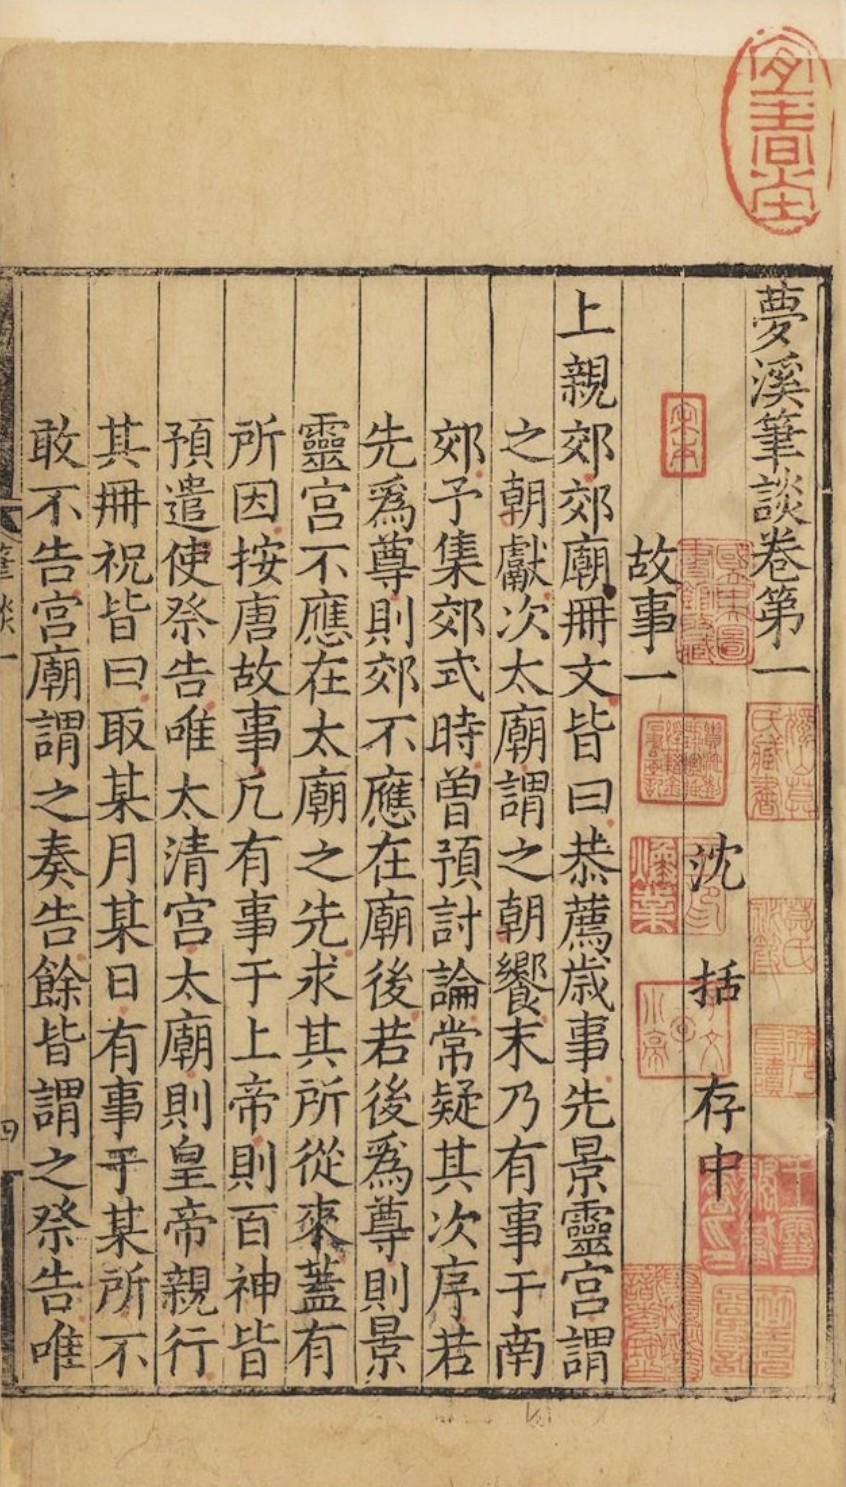 夢溪筆談卷第一
沈括存中
故事一
上親郊郊廟冊文皆曰恭薦歲事先景靈宮謂
之朝獻次太廟謂之朝饗末乃有事于南
郊予集郊式時曾預討論常疑其次序若
先爲尊則郊不應在廟後若後爲尊則景
靈宮不應在太廟之先求其所從來蓋有
所因按唐故事凢有事于上帝則百神皆
預遣使祭告唯太清宮太廟則皇帝親行
其冊祝皆曰取某月某日有事于某所不
敢不告宮廟謂之奏告餘皆謂之祭告唯
筆談一
四
宋本